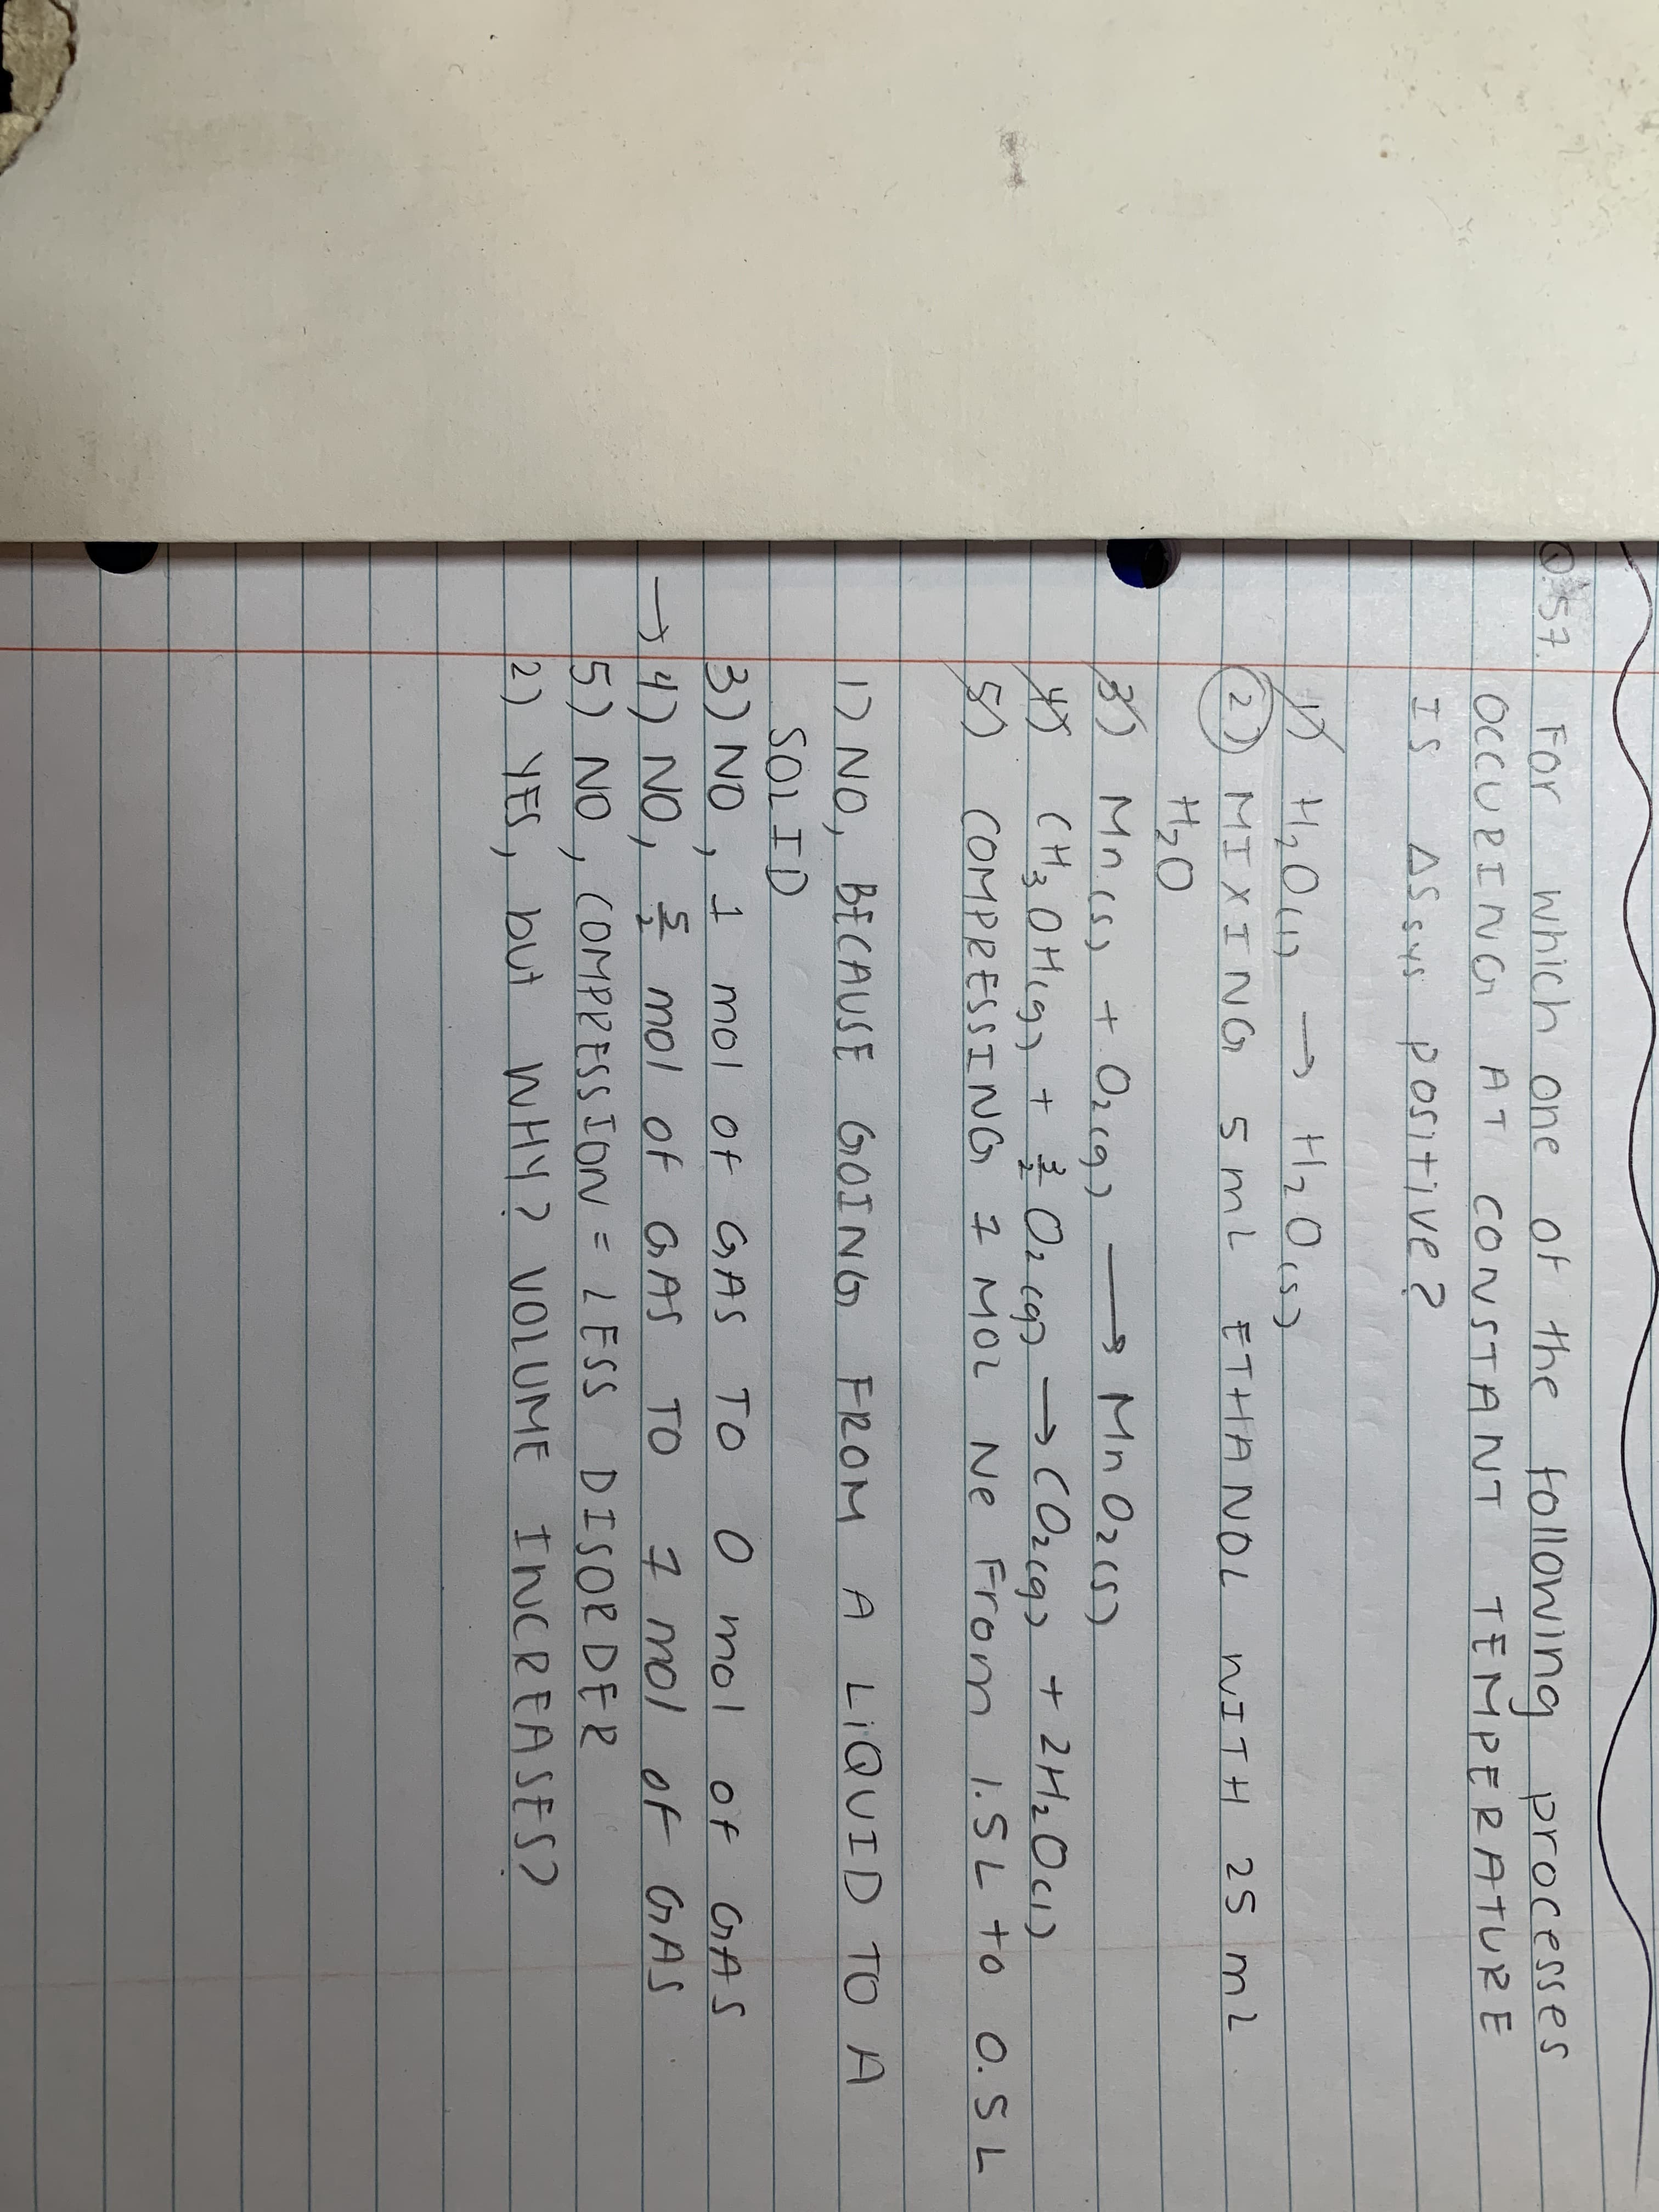 Q.57. For which one of the following processes
OCCURING AT CONSTANT TEMPERATURE
IS ΔSsys positive?
1) H₂O(l) → H₂O(s)
2) MIXING 5 mL ETHANOL WITH 25 mL
H₂O
3) Mn(s) + O₂(g) → MnO₂(s)
4) CH₃OH(g) + 3/2 O₂(g) → CO₂(g) + 2H₂O(l)
5) COMPRESSING 1 MOL Ne From 1.5L to 0.5L
1) NO, BECAUSE GOING FROM A LIQUID TO A
SOLID
3) NO, 1 mol of GAS TO 0 mol of GAS
→ 4) NO, 5/2 mol of GAS TO 1 mol of GAS
5) NO, COMPRESSION = LESS DISORDER
2) YES, but WHY? VOLUME INCREASES?